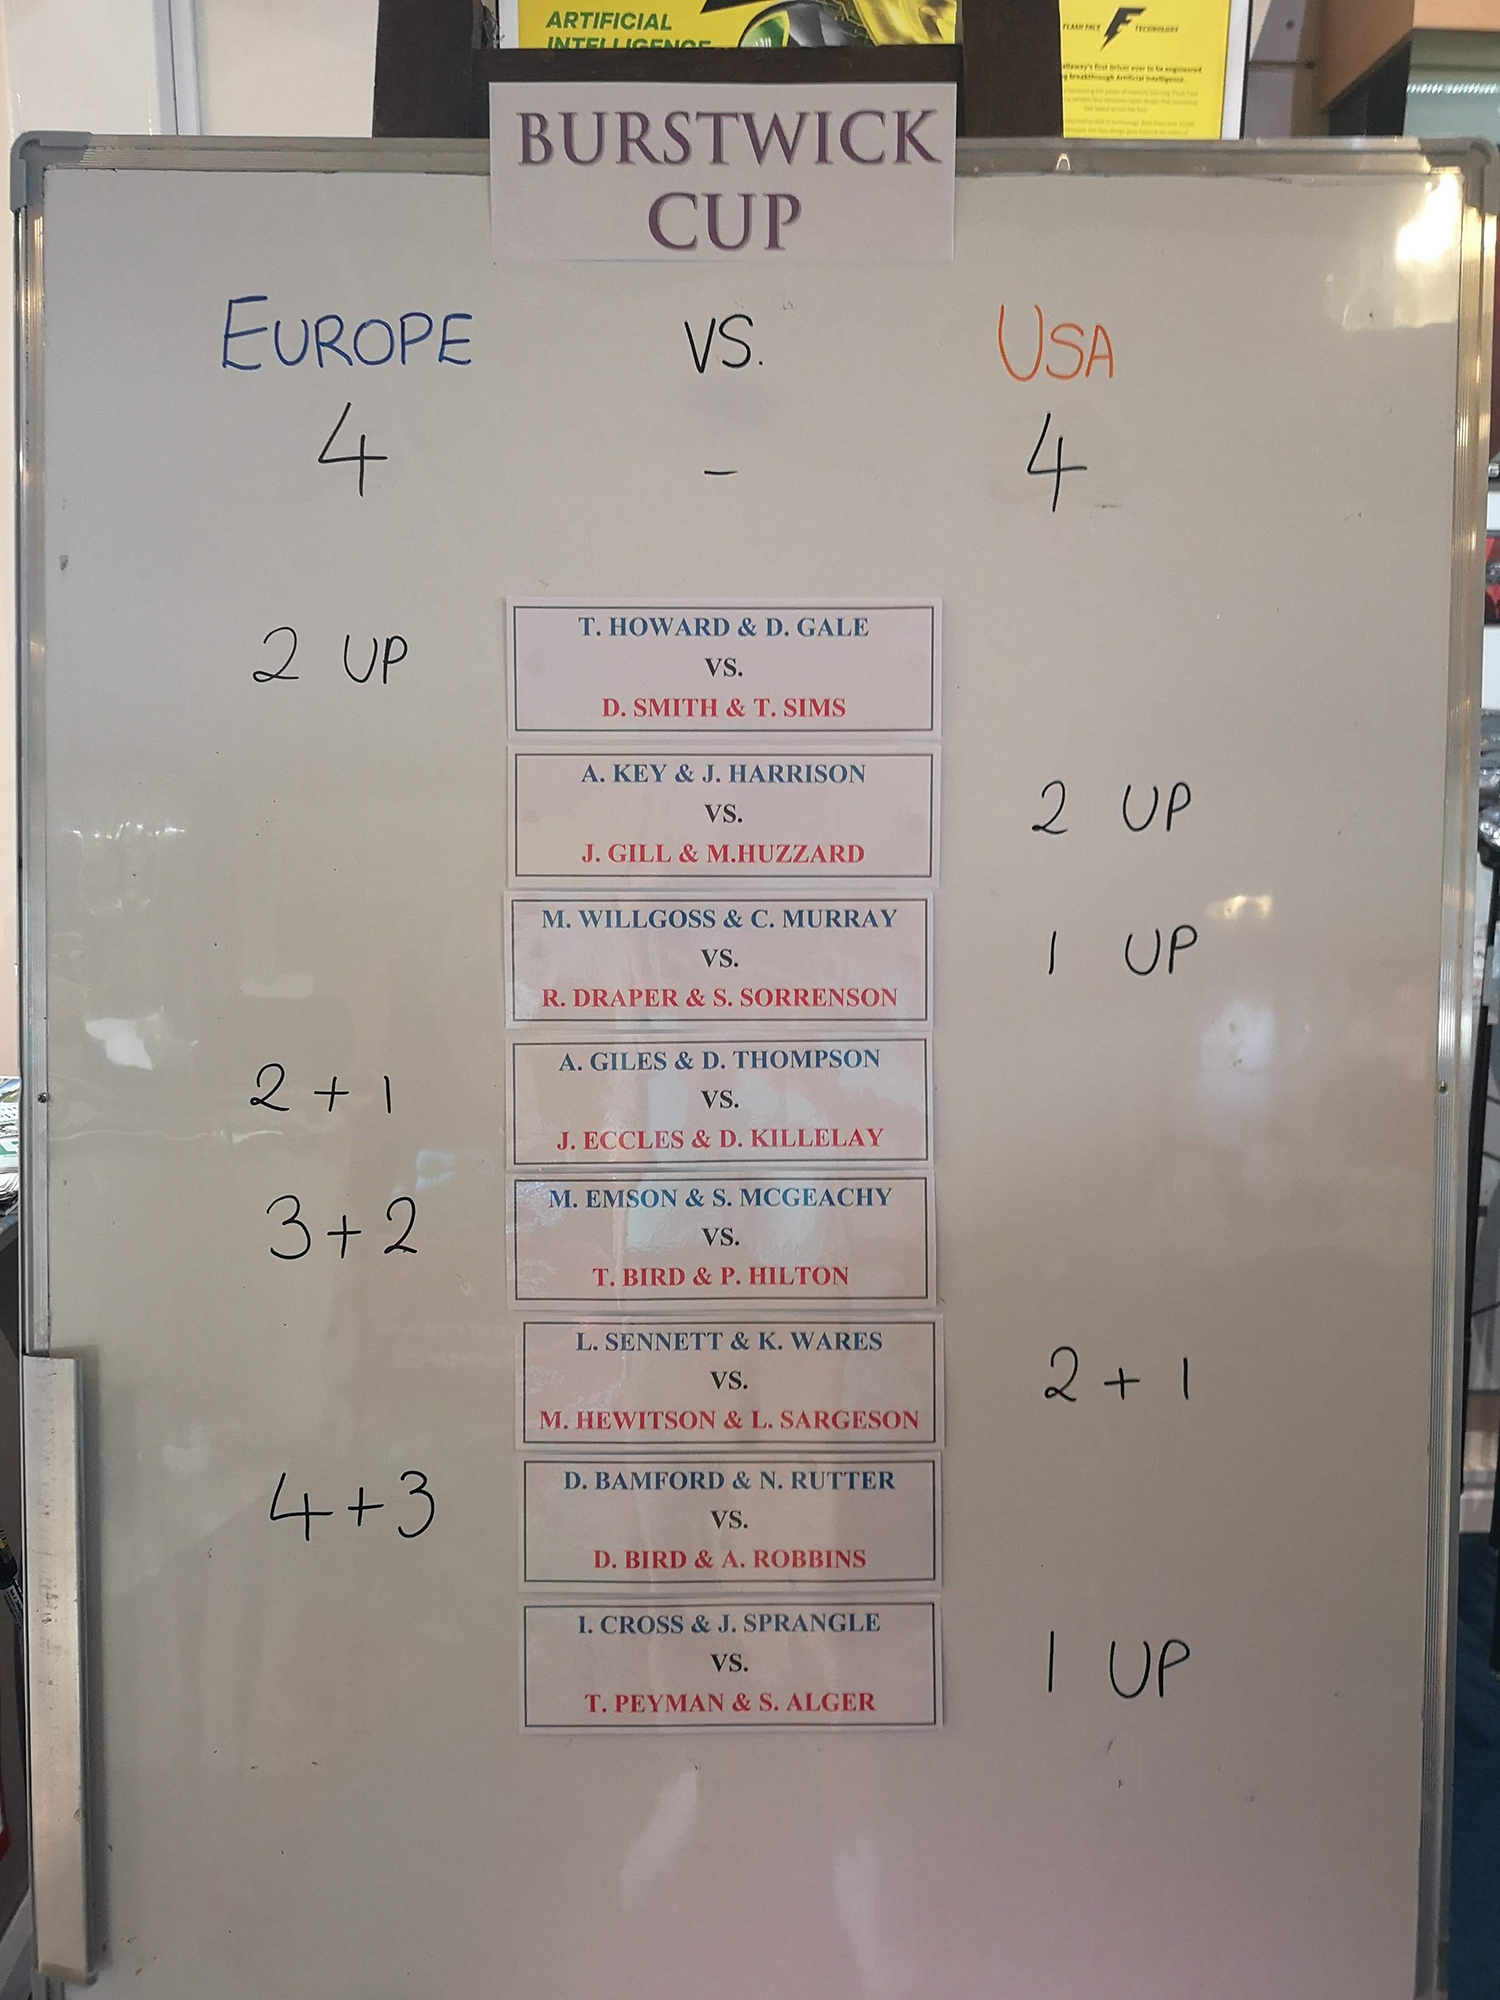 ARTIFICIAL
INTELLIGENCE
FLASH FACE TECHNOLOGY
first driver ever to be engineered
breakthrough Artificial Intelligence.
BURSTWICK
CUP
EUROPE VS. USA
4 - 4
T. HOWARD & D. GALE
2 UP VS.
D. SMITH & T. SIMS
A. KEY & J. HARRISON
VS. 2 UP
J. GILL & M.HUZZARD
M. WILLGOSS & C. MURRAY
VS. 1 UP
R. DRAPER & S. SORRENSON
A. GILES & D. THOMPSON
2 + 1 VS.
J. ECCLES & D. KILLELAY
M. EMSON & S. MCGEACHY
3 + 2 VS.
T. BIRD & P. HILTON
L. SENNETT & K. WARES
VS. 2 + 1
M. HEWITSON & L. SARGESON
D. BAMFORD & N. RUTTER
4 + 3 VS.
D. BIRD & A. ROBBINS
I. CROSS & J. SPRANGLE
VS. 1 UP
T. PEYMAN & S. ALGER